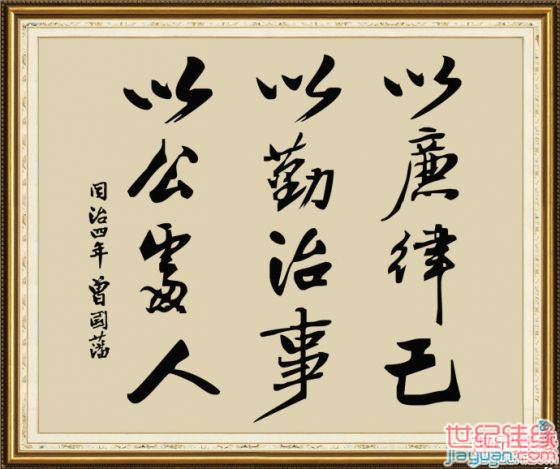 以廉律己
以勤治事
以公處人
同治四年 曾國藩
世纪佳缘
jiayuan.com